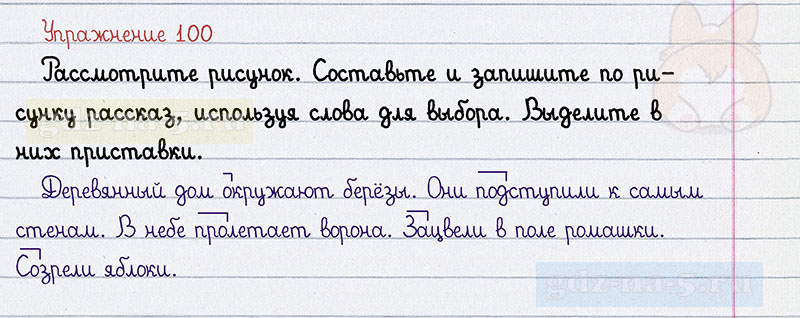 Упражнение 100
Рассмотрите рисунок. Составьте и запишите по ри-
сунку рассказ, используя слова для выбора. Выделите в
них приставки.
Деревянный дом окружают берёзы. Они подступили к самым
стенам. В небе пролетает ворона. Зацвели в поле ромашки.
Созрели яблоки.
gdz-na-5.ru
gdz-na-5.ru